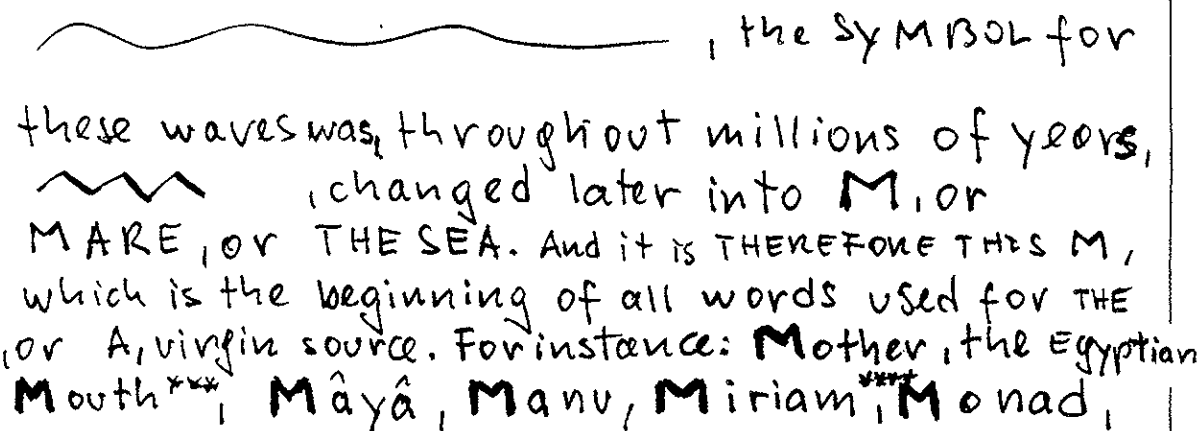 , the SYMBOL for
these waves was, throughout millions of years,
, changed later into M, or
MARE, or THE SEA. And it is THEREFORE THIS M,
which is the beginning of all words used for THE
, or A, virgin source. For instance: Mother, the Egyptian
Mouth***, Mâyâ, Manu, Miriam****, Monad,